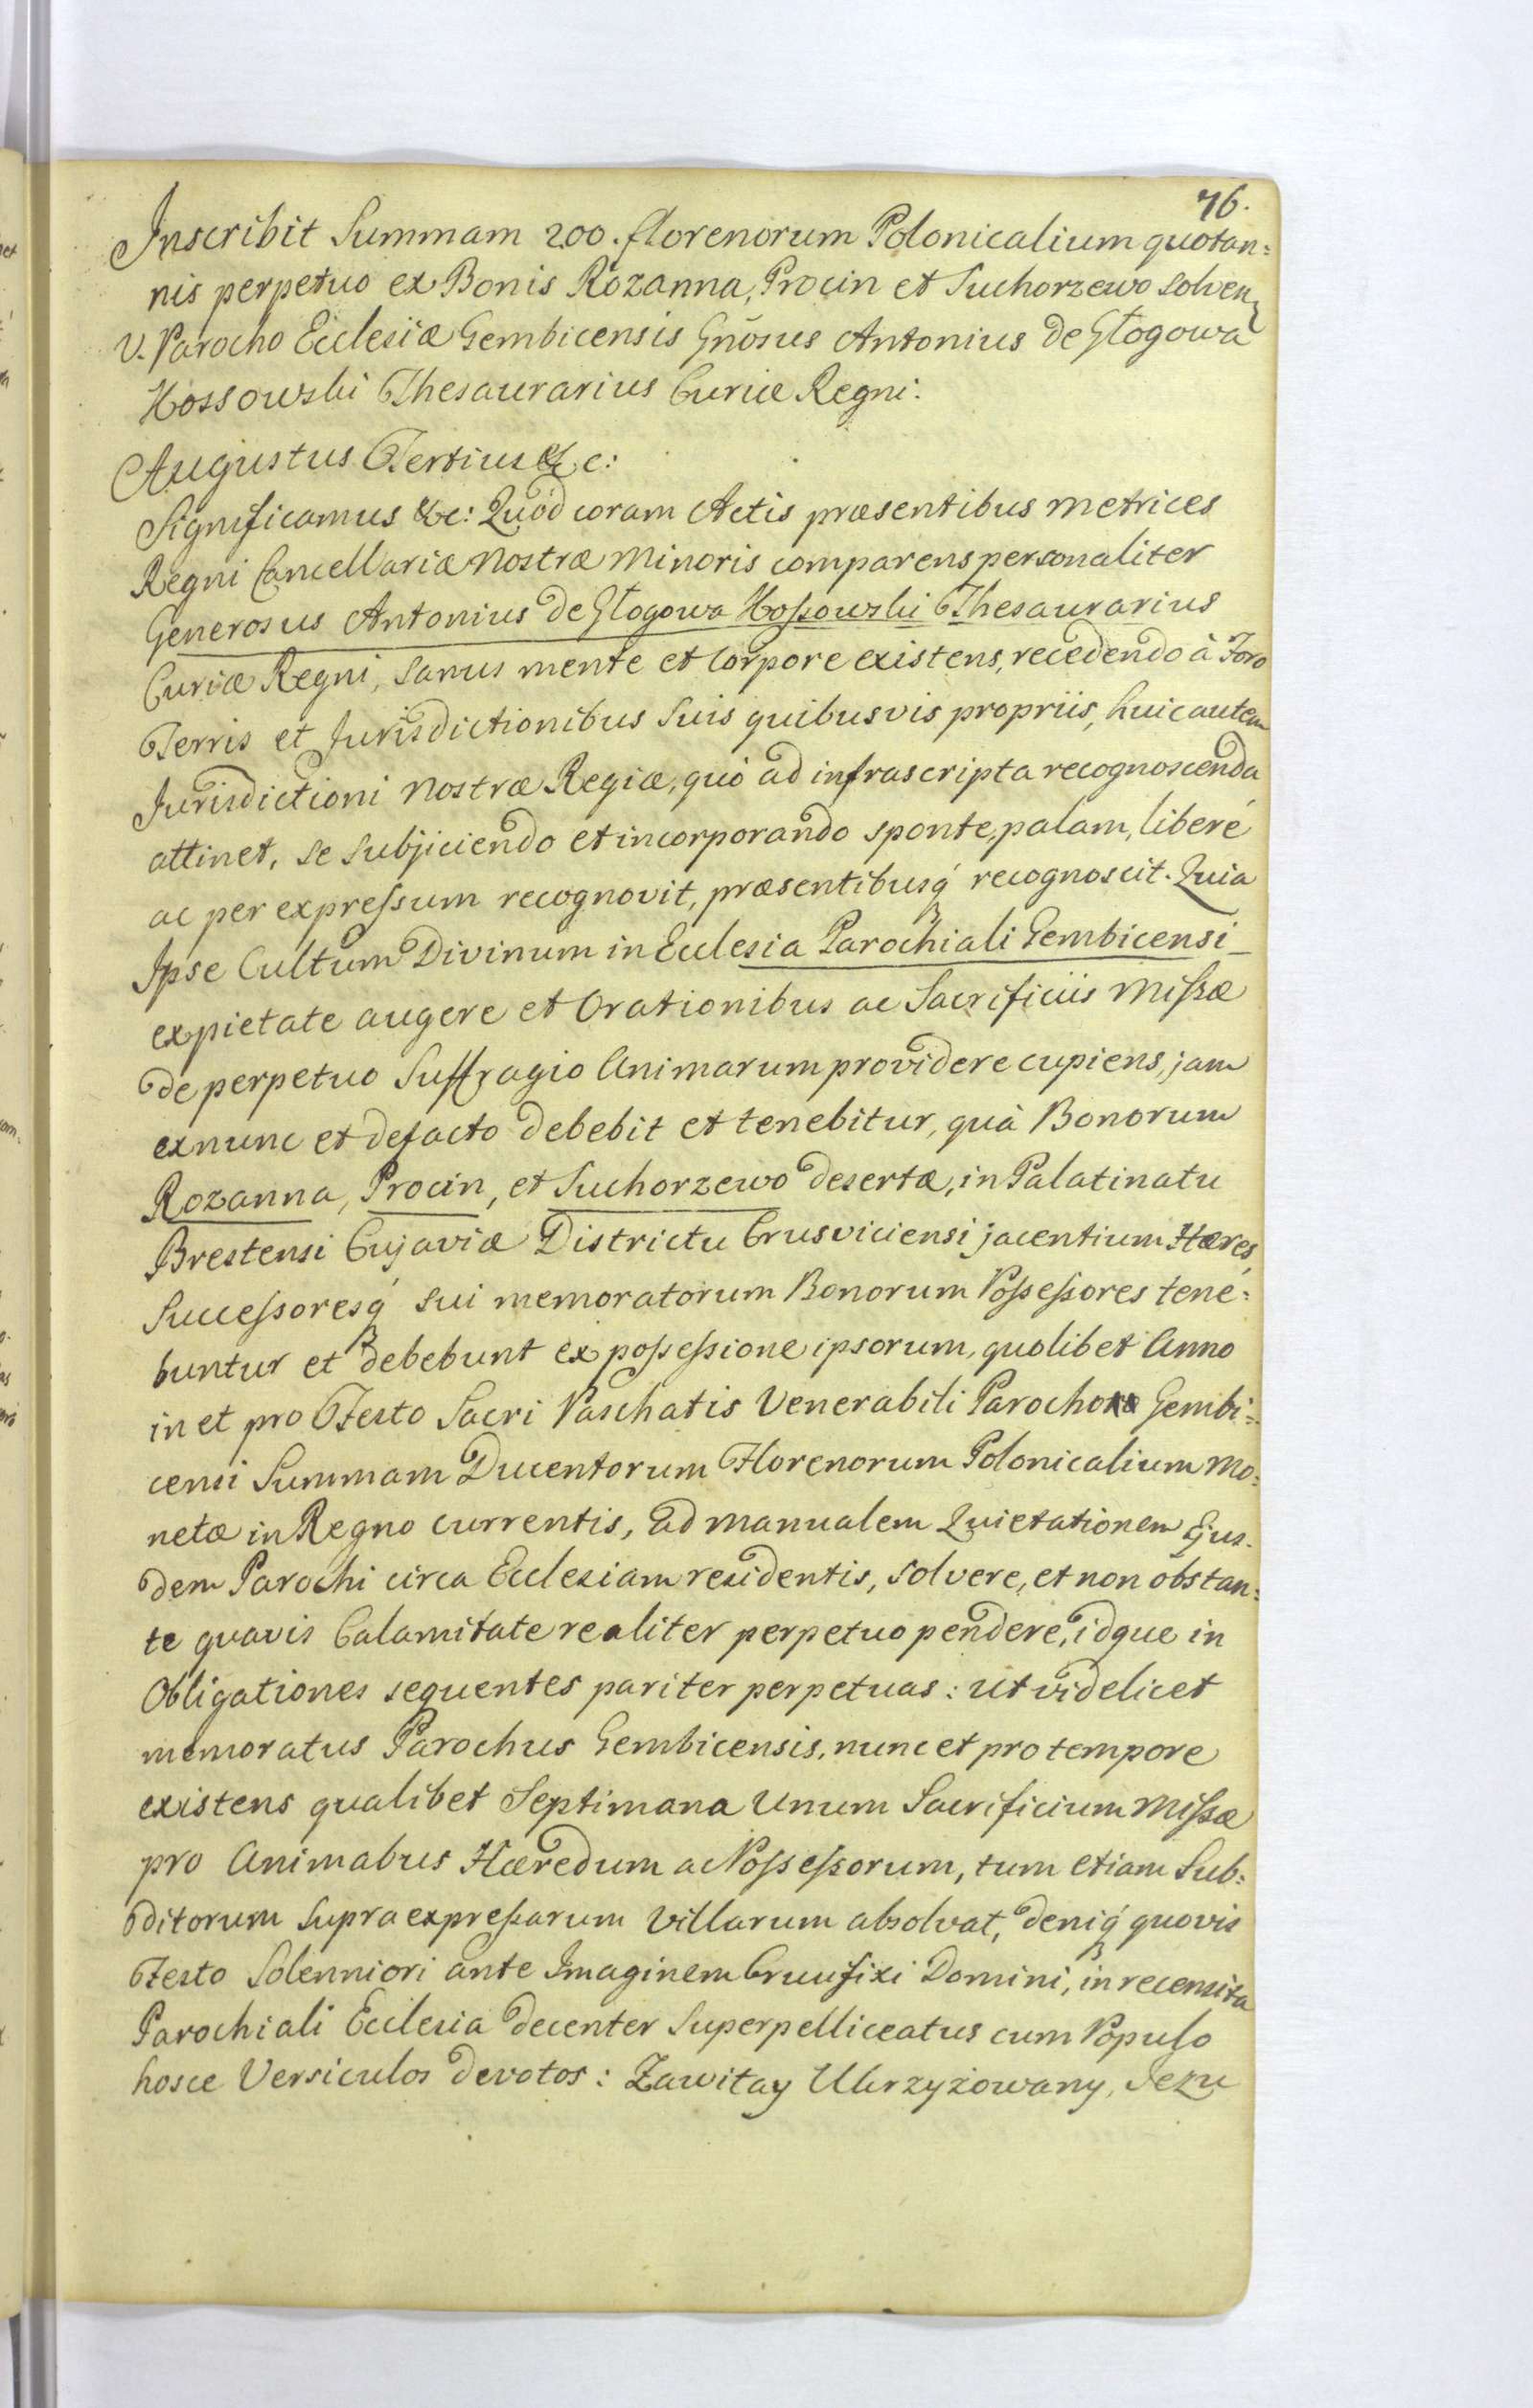 76.
Inscribit Summam 200. florenorum Polonicalium quotan=
nis perpetuo ex Bonis Rozanna, Procin et Suchorzewo solven
V. Parocho Ecclesiæ Gembicensis Gnõsus Antonius de Głogowa
Kossowski Thesaurarius Curiæ Regni:
Augustus Tertius &c:
Significamus &c: Quòd coram Actis præsentibus Metrices
Regni Cancellariæ Nostræ Minoris comparens personaliter
Generosus Antonius de Głogowa Koſsowski Thesaurarius
Curiæ Regni, sanus mente et Corpore existens, recedendo à Foro
Terris et Jurisdictionibus Suis quibusvis propriis, huic autem
Jurisdictioni Nostræ Regiæ, quò ad infrascripta recognoscenda
attinet, se subjiciendo et incorporando sponte, palam, liberé
ac per expreſsum recognovit, præsentibusq́ recognoscit. Quia
Ipse Cultum Divinum in Ecclesia Parochiali Gembicensi
ex pietate augere et Orationibus ac Sacrificiis Miſsæ
de perpetuo Suffragio Animarum providere cupiens, jam
exnunc et defacto debebit et tenebitur, quà Bonorum
Rozanna, Procin, et Suchorzewo desertæ, in Palatinatu
Brestensi Cujaviæ Districtu Crusviciensi jacentium Hæres,
Succeſsoresq́ sui memoratorum Bonorum Poſseſsores tene=
buntur et debebunt ex poſseſsione ipsorum, quolibet Anno
in et pro Festo Sacri Paschatis Venerabili Parocho Gembi=
censi Summam Ducentorum Florenorum Polonicalium Mo=
netæ in Regno currentis, ad manualem Quietationem Ejus-
dem Parochi circa Ecclesiam residentis, solvere, et non obstan=
te quavis Calamitate realiter perpetuo pendere, idque in
Obligationes sequentes pariter perpetuas: ut videlicet
memoratus Parochus Gembicensis, nunc et pro tempore
existens qualibet Septimana Unum Sacrificium Miſsæ
pro Animabus Hæredum ac Poſseſsorum, tum etiam Sub=
ditorum supra expreſsarum Villarum absolvat, deniq́ quovis
Festo Solenniori ante Imaginem Crucifixi Domini, in recensita
Parochiali Ecclesia decenter Superpelliceatus cum Populo
hosce Versiculos devotos: Zawitay Ukrzyżowany, Jezu